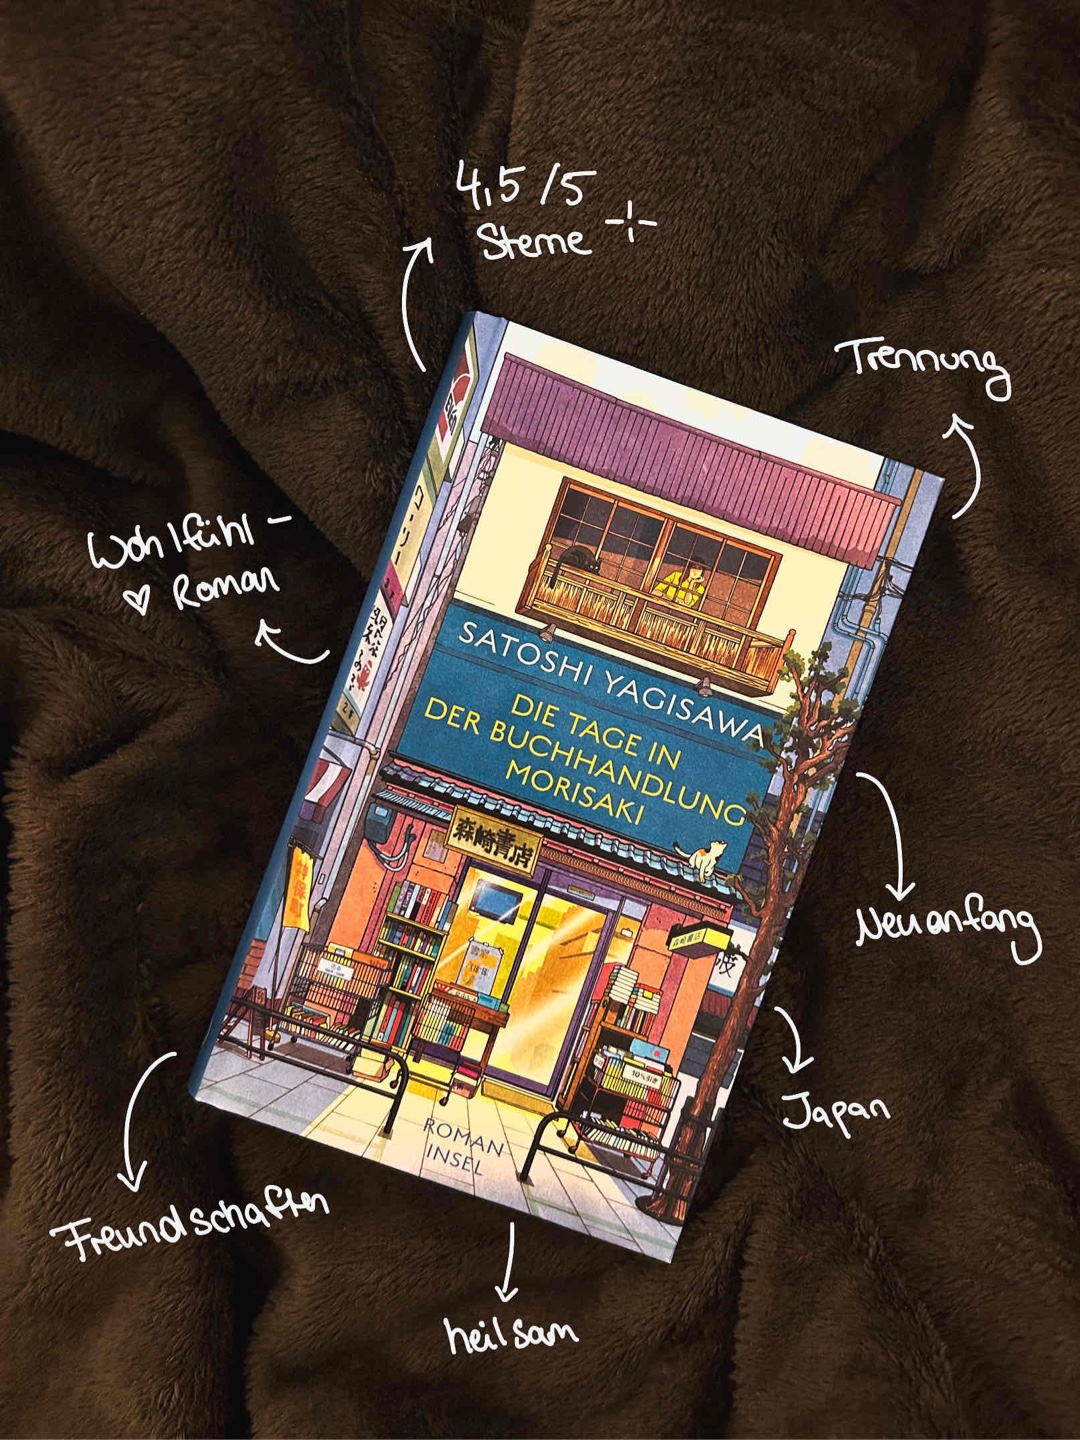 4,5/5
Sterne
Trennung
Wohlfühl-
Roman
SATOSHI YAGISAWA
DIE TAGE IN
DER BUCHHANDLUNG
MORISAKI
森崎書店
Neuanfang
森崎書店
10%引き
Japan
ROMAN
INSEL
Freundschaften
heilsam